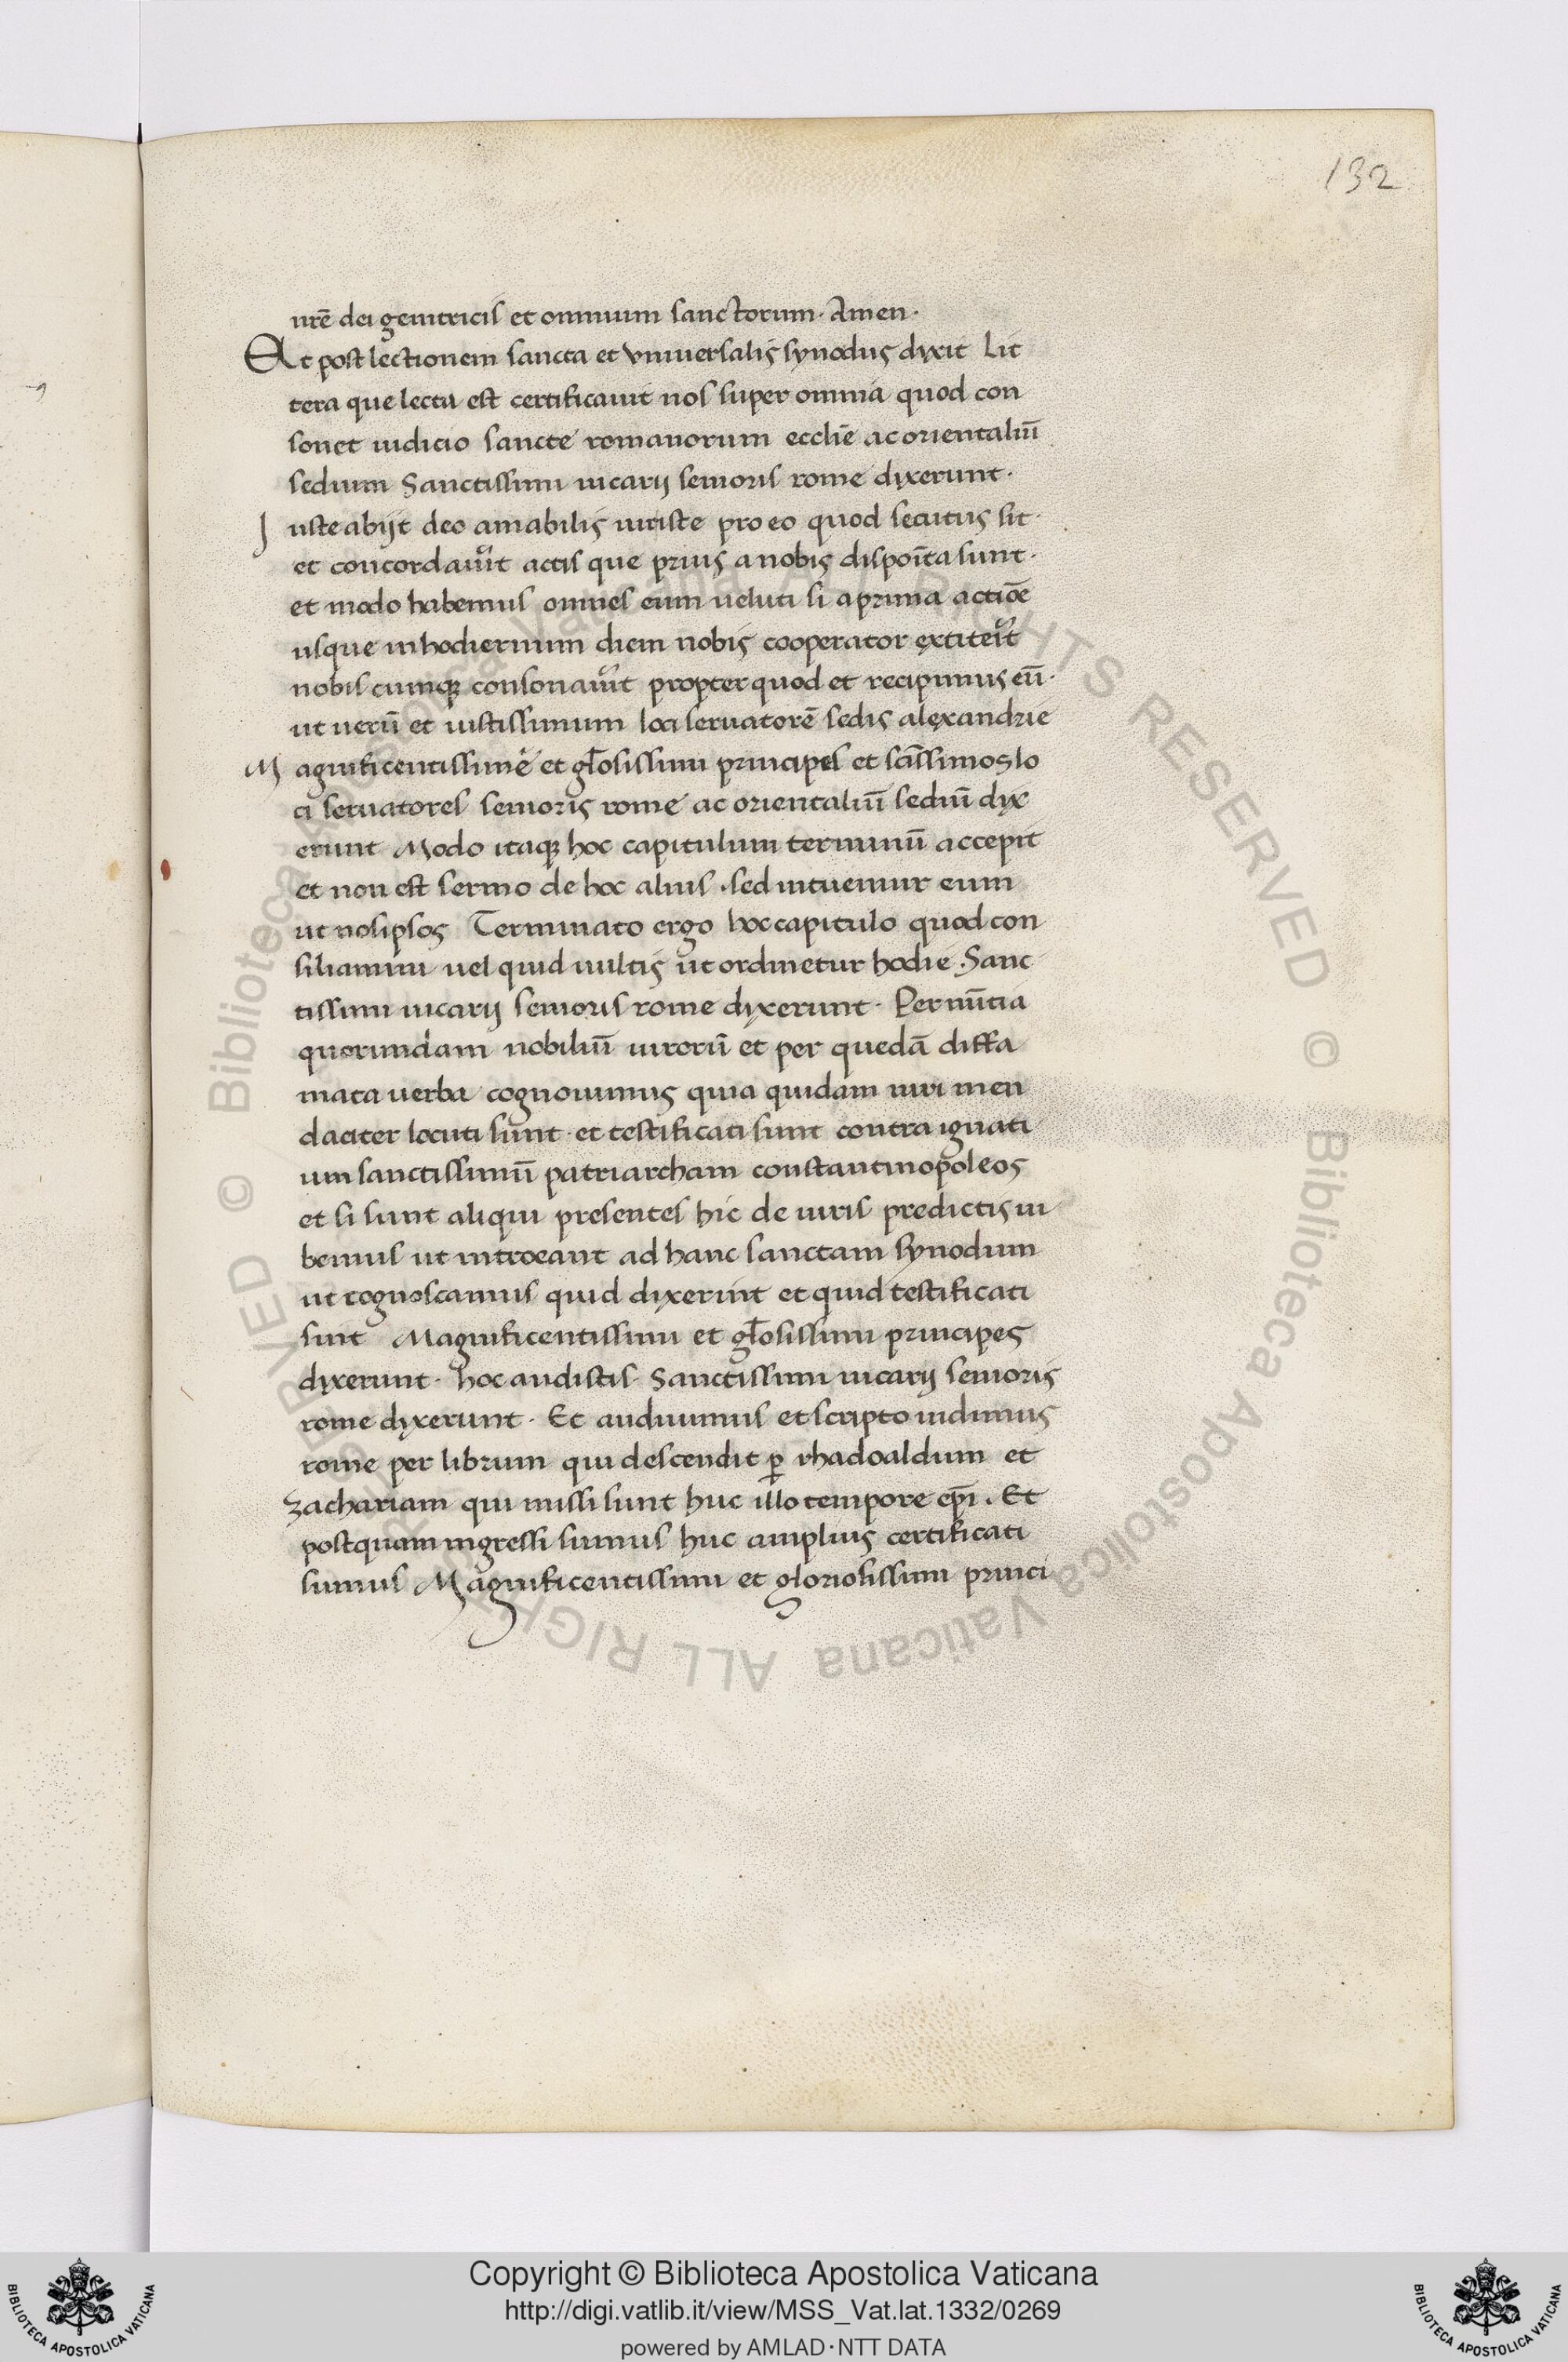 132
nrē dei genitricis et omnium sanctorum. Amen.
Et post lectionem sancta et vniuersalis synodus dyxit Lit
tera que lecta est certificauit nos super omnia quod con
sonet iudicio sancte romanorum ecclīe ac orientaliū
sedium Sanctissimi uicarij senioris rome dyxerunt.
Juste abijt deo amabilis uir iste pro eo quod secutus sit
et concordauit actis que prius a nobis dispoīta sunt.
et modo habemus omnes eum ueluti si a prima actiōe
usque in hodiernum diem nobis cooperator extiterit
nobiscumq; consonauit propter quod et recipimus eū.
ut uerū et iustissimum loci seruatorē sedis alexandrie
Magnificentissime et glōsissimi principes et scīssimos lo
ci seruatores senioris rome ac orientaliū sediū dyx
erunt Modo itaq; hoc capitulum terminū accepit
et non est sermo de hoc alius. sed intuemur eum
ut nosipsos Terminato ergo hoc capitulo quod con
siliamini uel quid uultis ut ordinetur hodie. Sanc
tissimi uicarij senioris rome dyxerunt. Per nūtia
quorundam nobiliū uirorū et per quedā diffa
mata uerba cognouimus quia quidam uiri men
daciter locuti sunt. et testificati sunt contra ignati
um sanctissimū patriarcham constantinopoleos
et si sunt aliqui presentes hic de uiris predictis iu
bemus ut introeant ad hanc sanctam synodum
ut cognoscamus quid dixerint et quid testificati
sint Magnificentissimi et glōsissimi principes
dyxerunt. hoc audistis. Sanctissimi uicarij senioris
rome dyxerunt. Et audiuimus et scripto uidimus
rome per librum qui descendit ꝑ rhadoaldum et
zachariam qui missi sunt huc illo tempore ep̄i. Et
postquam ingressi sumus huc amplius certificati
sumus Magnificentissimi et gloriosissimi princi
© Biblioteca Apostolica Vaticana ALL RIGHTS RESERVED © Biblioteca Apostolica Vaticana ALL RIGHTS RESERVED
Copyright © Biblioteca Apostolica Vaticana
http://digi.vatlib.it/view/MSS_Vat.lat.1332/0269
powered by AMLAD·NTT DATA
BIBLIOTECA APOSTOLICA VATICANA
BIBLIOTECA APOSTOLICA VATICANA